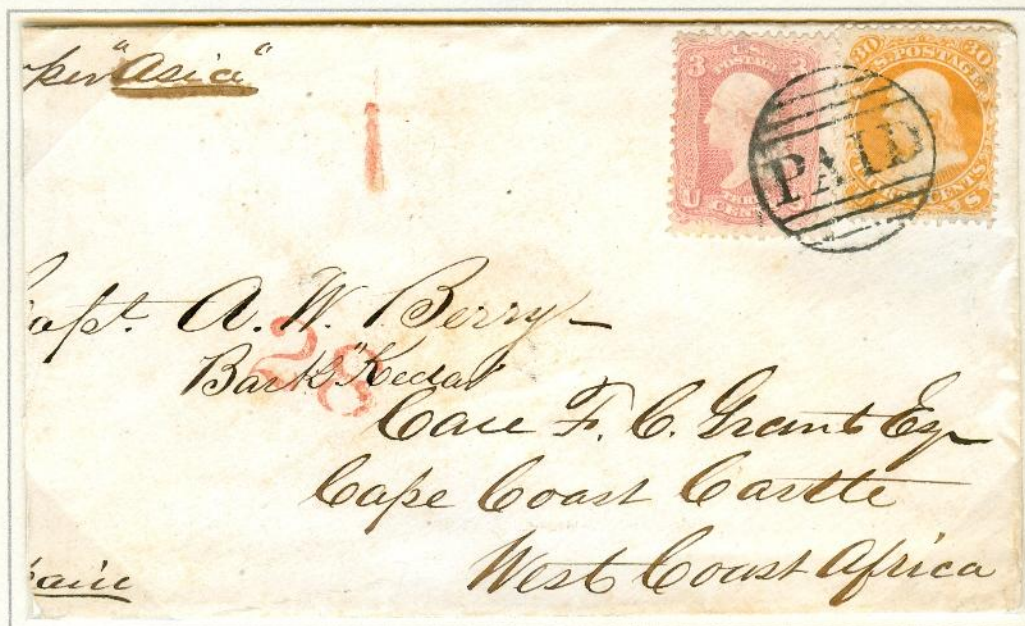 per "Asia"
3 U.S. POSTAGE 3
U THREE CENTS S
30 U.S. POSTAGE 30
CENTS
PAID
Capt. A. W. Berry
28
Bark "Kedar"
Care F. C. Grant Esq
Cape Coast Castle
West Coast Africa
Paid